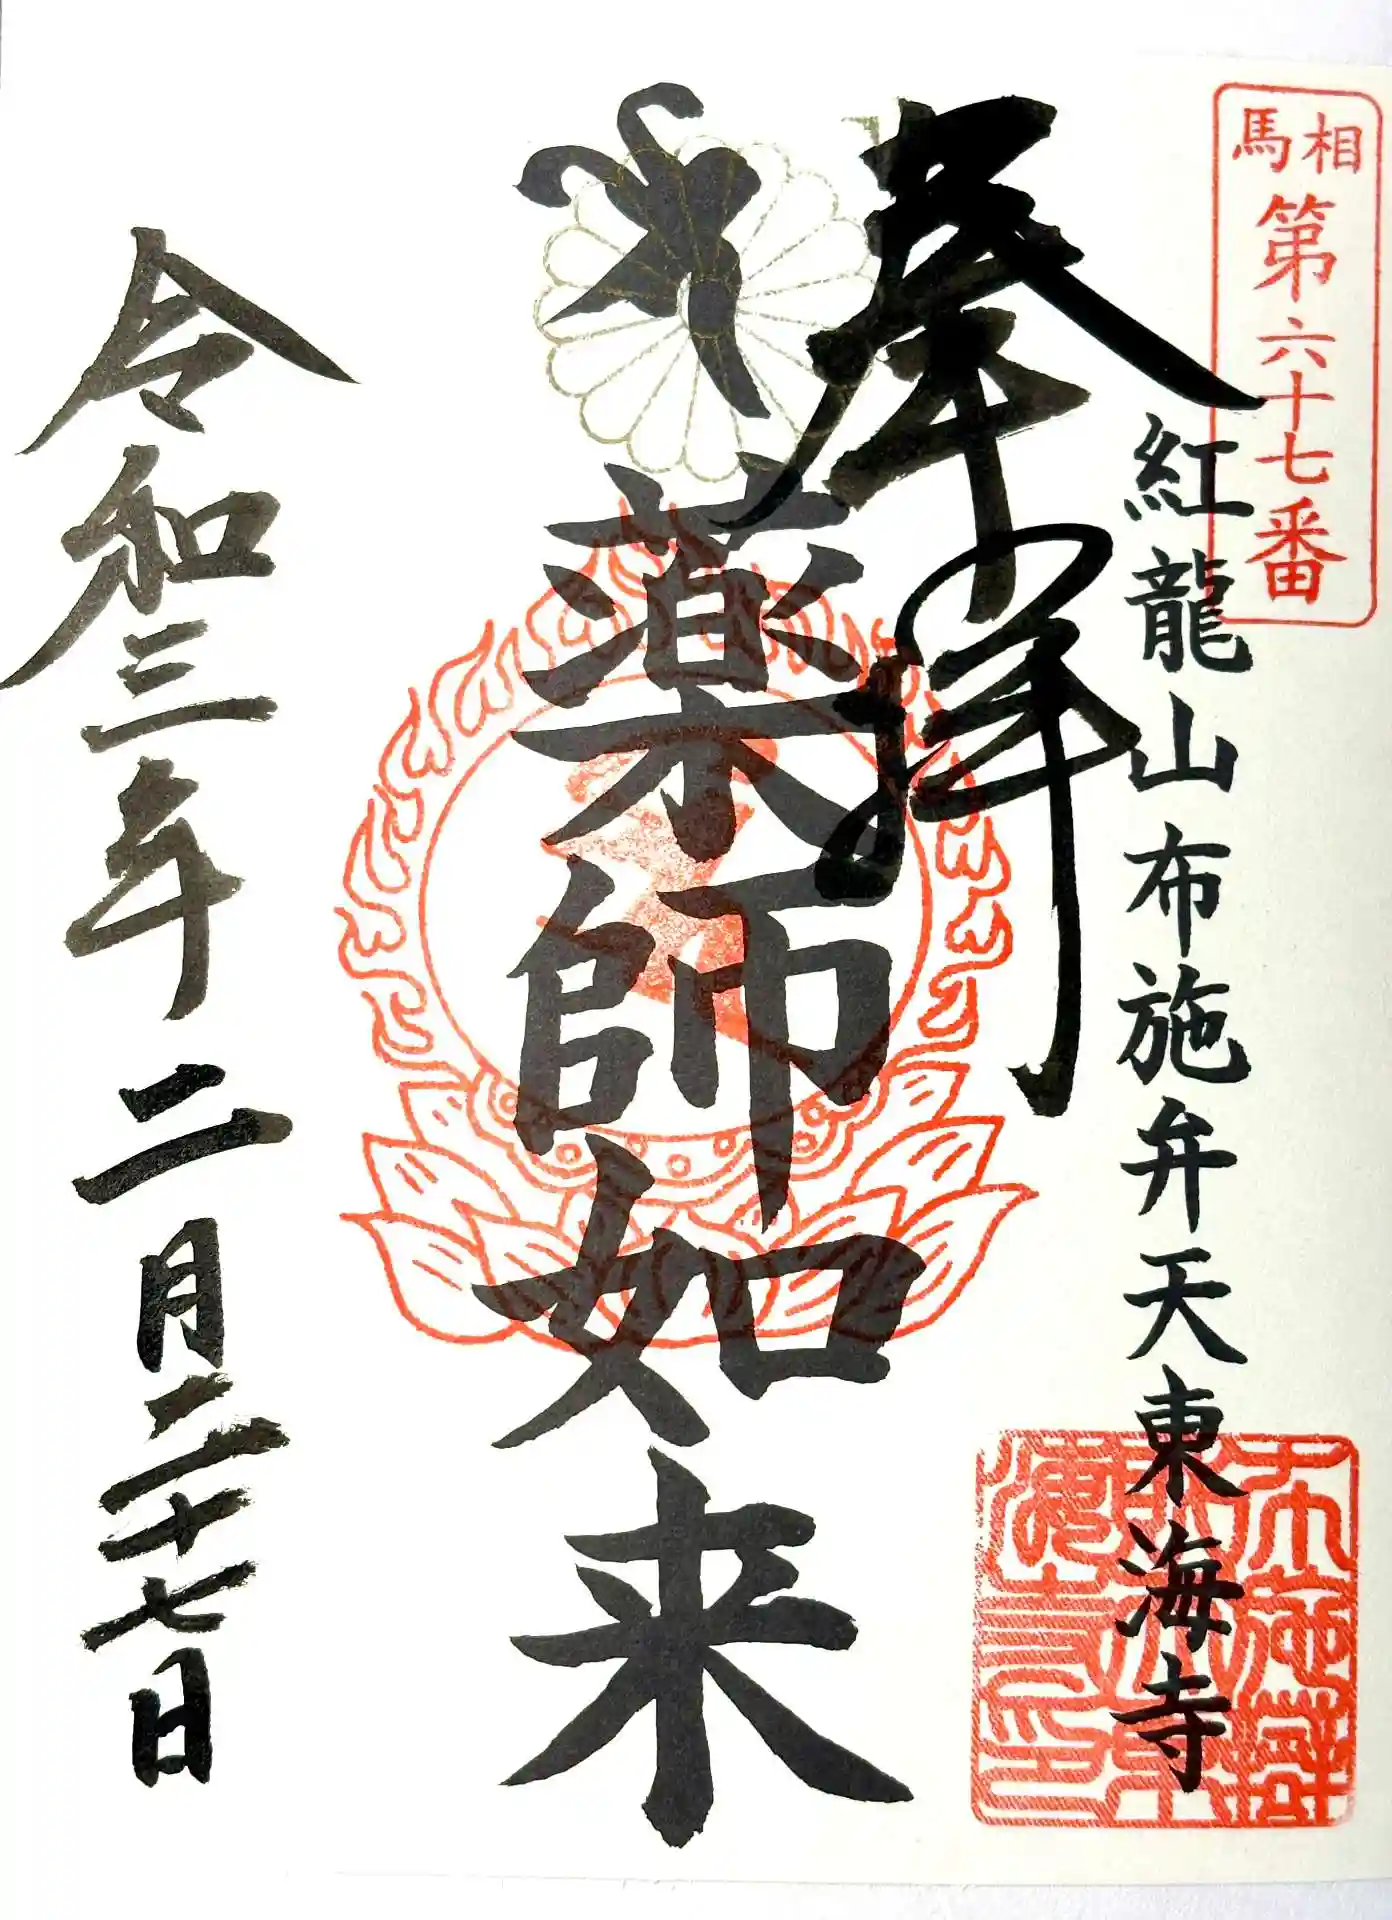 相馬
第六十七番
奉拝
紅龍山布施弁天東海寺
薬師如来
令和三年二月二十七日